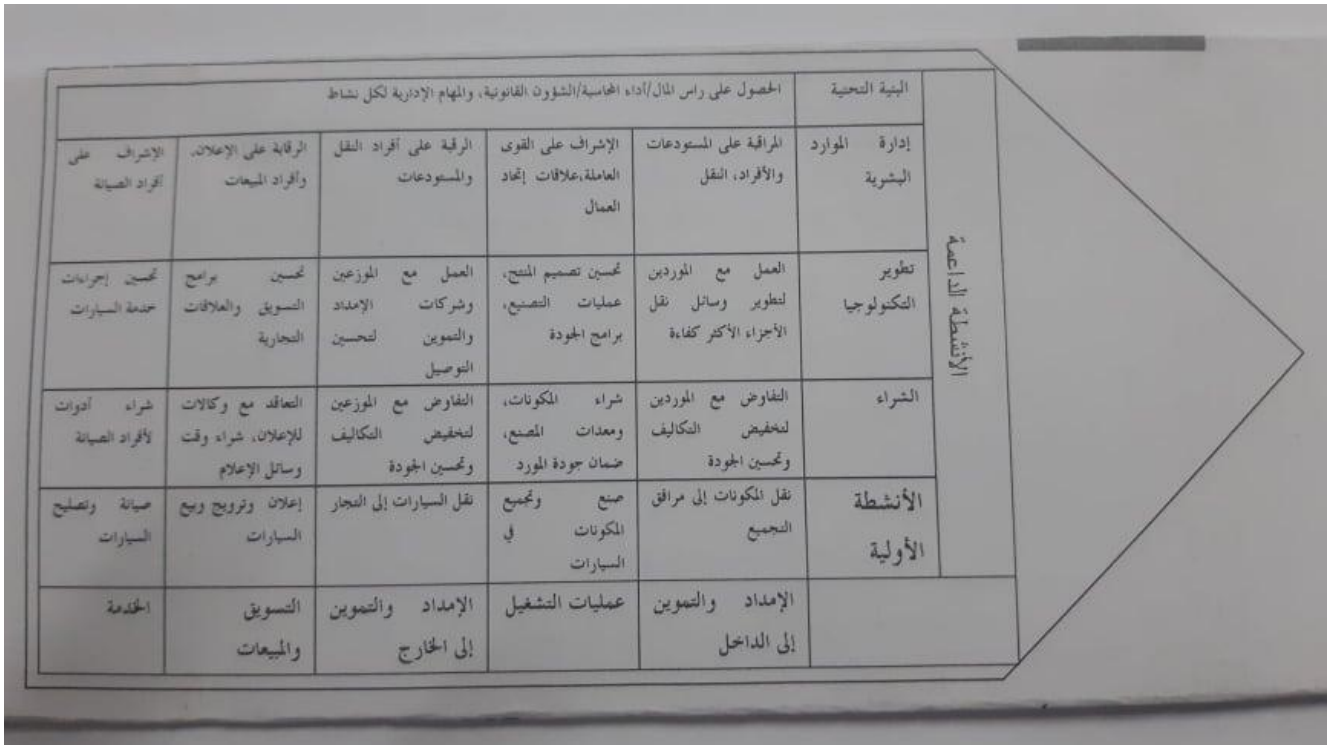 البنية التحتية
الحصول على راس المال/أداء المحاسبة/الشؤون القانونية، والمهام الإدارية لكل نشاط
الأنشطة الداعمة
إدارة الموارد
البشرية
المراقبة على المستودعات
والأفراد، النقل
الإشراف على القوى
العاملة،علاقات إتحاد
العمال
الرقبة على أفراد النقل
والمستودعات
الرقابة على الإعلان،
وأفراد المبيعات
الإشراف على
أفراد الصيانة
تطوير
التكنولوجيا
العمل مع الموردين
لتطوير وسائل نقل
الأجزاء الأكثر كفاءة
تحسين تصميم المنتج،
عمليات التصنيع،
برامج الجودة
العمل مع الموزعين
وشركات الإمداد
والتموين لتحسين
التوصيل
تحسين برامج
التسويق والعلاقات
التجارية
تحسين إجراءات
خدمة السيارات
الشراء
التفاوض مع الموردين
لتخفيض التكاليف
وتحسين الجودة
شراء المكونات،
ومعدات المصنع،
ضمان جودة المورد
التفاوض مع الموزعين
لتخفيض التكاليف
وتحسين الجودة
التعاقد مع وكالات
للإعلان، شراء وقت
وسائل الإعلام
شراء أدوات
لأفراد الصيانة
الأنشطة
الأولية
نقل المكونات إلى مرافق
التجميع
صنع وتجميع
المكونات في
السيارات
نقل السيارات إلى التجار
إعلان وترويج وبيع
السيارات
صيانة وتصليح
السيارات
الإمداد والتموين
إلى الداخل
عمليات التشغيل
الإمداد والتموين
إلى الخارج
التسويق
والمبيعات
الخدمة